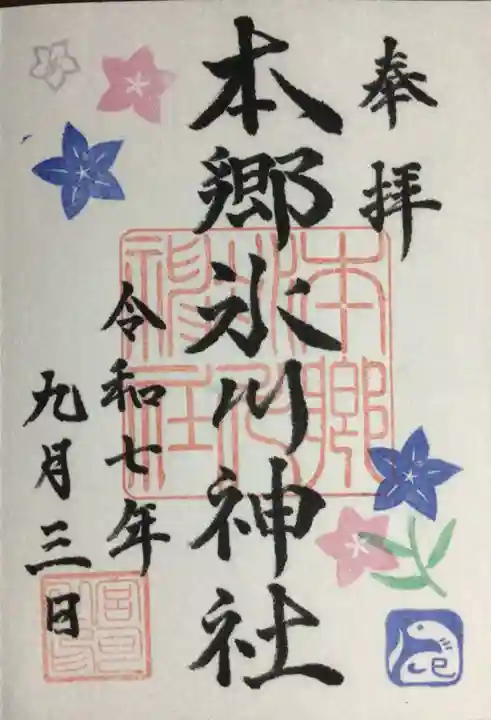 奉拝
本郷氷川神社
令和七年
九月三日
本郷氷川神社
巳